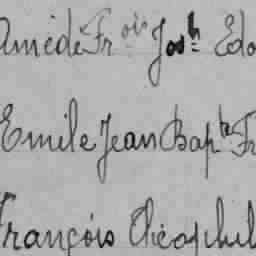 Amédé Frois Josh Edo
Emile Jean Bapte Fr
François Théophil